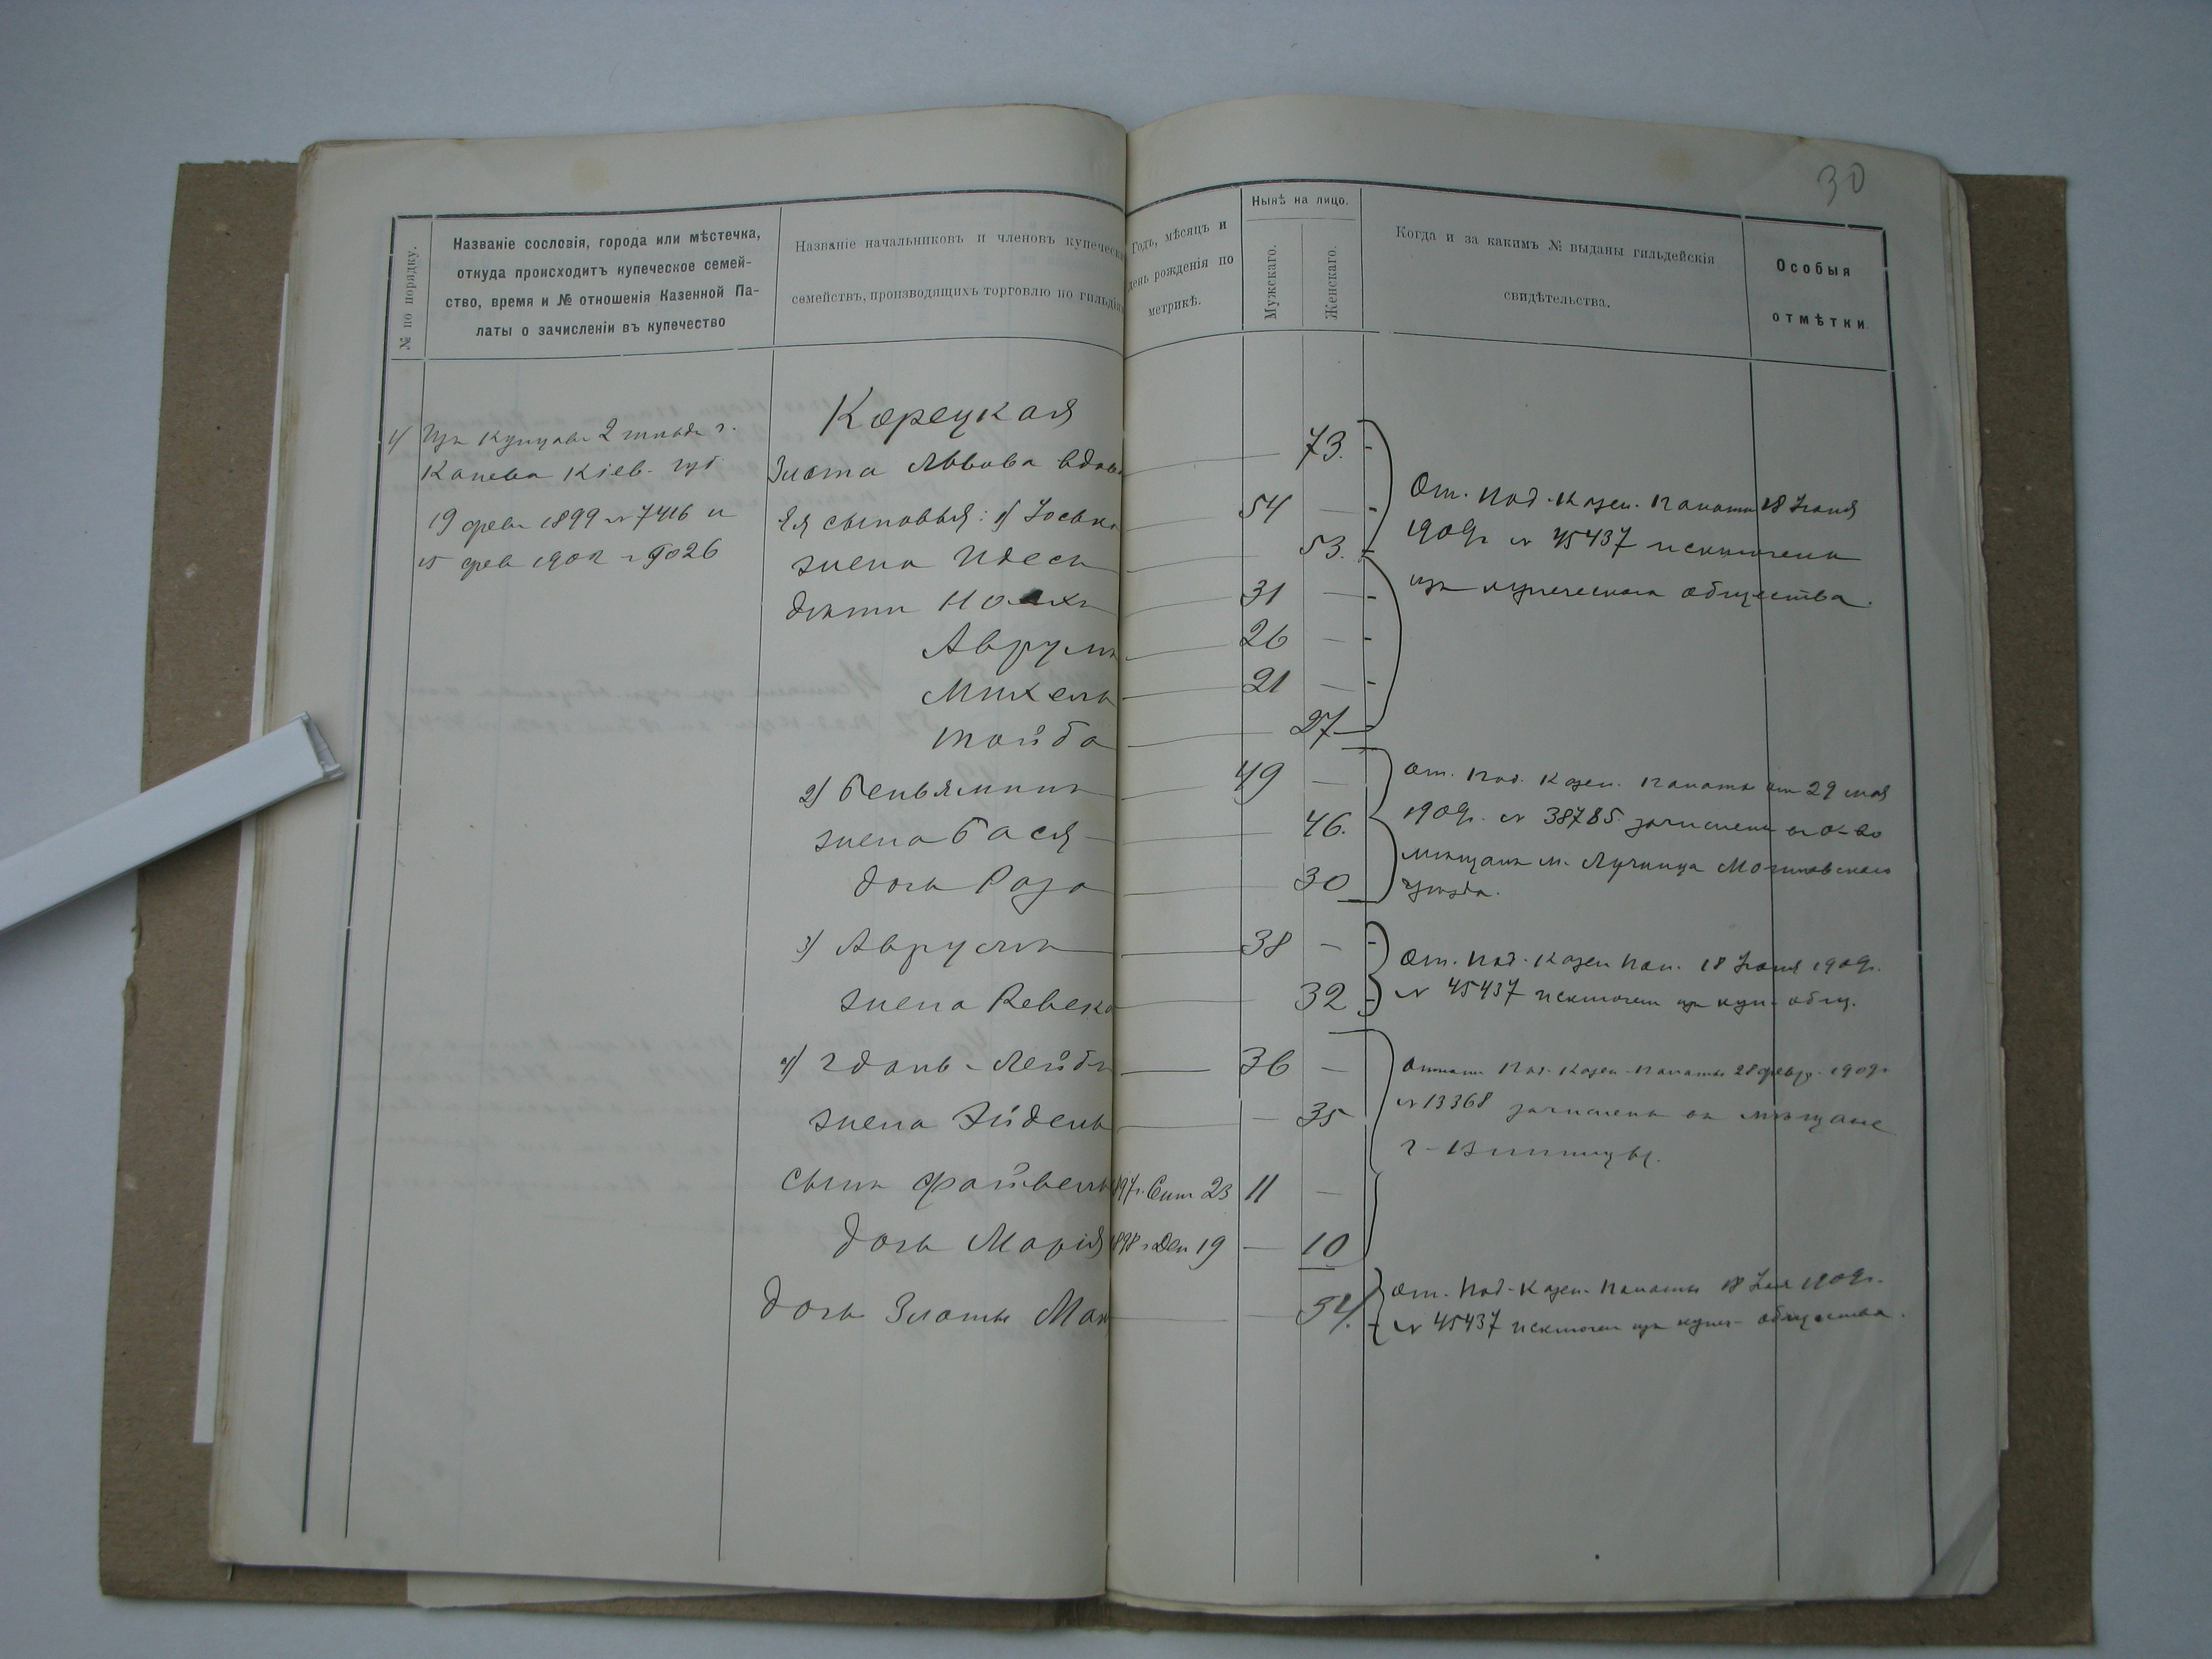 30
№ по порядку.
Названіе сословія, города или мѣстечка,
откуда происходитъ купеческое семей-
ство, время и № отношенія Казенной Па-
латы о зачисленіи въ купечество
Названіе начальниковъ и членовъ купеческ
семействъ, производящихъ торговлю по гильдія
Годъ, мѣсяцъ и
день рожденія по
метрикѣ.
Нынѣ на лицо.
Мужскаго.
Женскаго.
Когда и за какимъ № выданы гильдейскія
свидѣтельства.
Особыя
отмѣтки.
Корецкая
1) Изъ купцовъ 2 гильд. г.
Канева Кіев. губ.
19 февр 1899 № 7416 и
15 фев 1902 № 9026
Злота Львова вдова 73.
Ея сыновья: 1) Іосько 54 —
жена Идесь 53.
дѣти 31 —
Аврумъ 26 —
Михель 21 —
Тойба 27
От. Под. Казен. Палаты 18 Іюня
1909г № 45437 исключены
изъ купеческаго общества.
2) Беньяминъ 49 —
жена Бася 46.
дочь Роза 30
От. Под. Казен. Палаты от 29 мая
1909г. № 38785 зачислены въ о-во
мѣщанъ м. Лучинца Могилевскаго
уѣзда.
3) Аврумъ 38 —
жена Ревека 32
От. Под. Казен Пал. 18 Іюня 1909г.
№ 45437 исключен изъ куп. общ.
4) Гдаль-Лейбъ 36 —
жена Эйдель — 35
сынъ Файвель 897г. Сент 23 11 —
дочь Марія 898 г Дек 19 — 10
Отнош. Под. Казен. Палаты 28 февр. 1909г
№ 13368 зачислены въ мѣщане
г. Винницы.
дочь Златы 54.
От. Под. Казен. Палаты 18 Іюня 1909г.
№ 45437 исключен изъ купеч. общества.